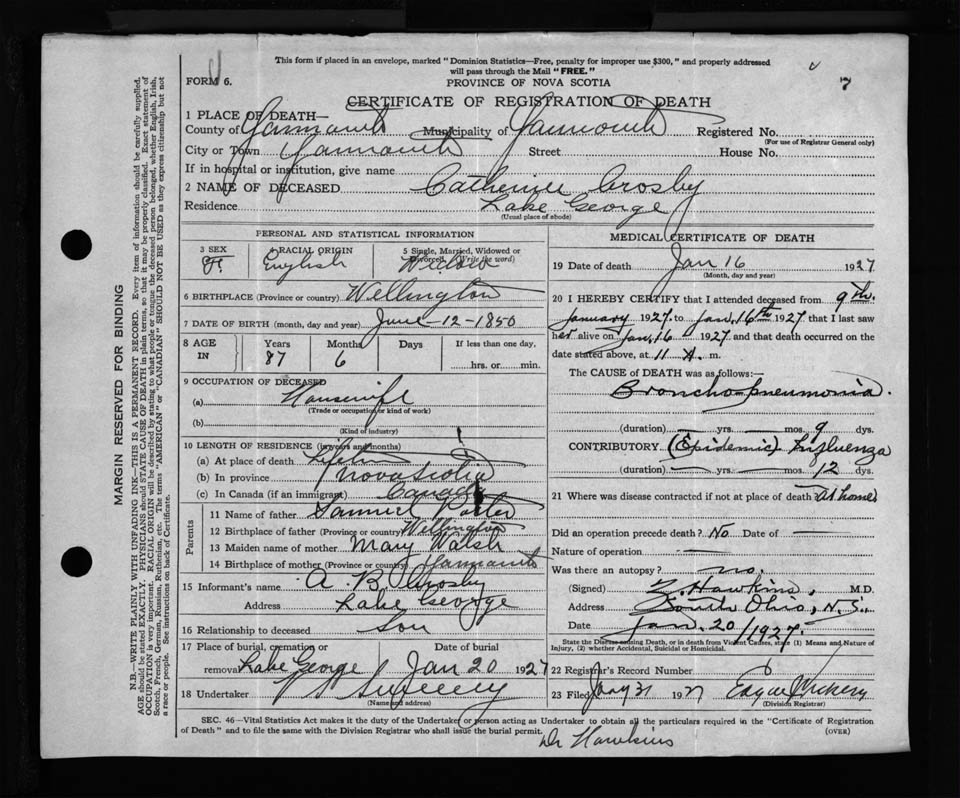 This form if placed in an envelope, marked "Dominion Statistics—Free, penalty for improper use $300," and properly addressed
will pass through the Mail "FREE."
FORM 6.
7
PROVINCE OF NOVA SCOTIA
CERTIFICATE OF REGISTRATION OF DEATH
1 PLACE OF DEATH—
County of Yarmouth Municipality of Yarmouth Registered No.
(For use of Registrar General only)
City or Town Yarmouth Street House No.
If in hospital or institution, give name
2 NAME OF DECEASED Catherine Crosby
Residence Lake George
(Usual place of abode)
PERSONAL AND STATISTICAL INFORMATION
3 SEX 4 RACIAL ORIGIN 5 Single, Married, Widowed or Divorced, (Write the word)
F. English Widow
6 BIRTHPLACE (Province or country) Wellington
7 DATE OF BIRTH (month, day and year) June-12-1850
8 AGE IN Years Months Days If less than one day,
87 6 hrs. or min.
9 OCCUPATION OF DECEASED
(a) Housewife
(Trade or occupation or kind of work)
(b)
(Kind of industry)
10 LENGTH OF RESIDENCE (in years and months)
(a) At place of death Lifetime
(b) In province Nova Scotia
(c) In Canada (if an immigrant) Canada
Parents
11 Name of father Samuel Potter
12 Birthplace of father (Province or country) Wellington
13 Maiden name of mother Mary Walsh
14 Birthplace of mother (Province or country) Yarmouth
15 Informant's name A. B. Crosby
Address Lake George
16 Relationship to deceased Son
17 Place of burial, cremation or Date of burial
removal Lake George Jan 20 1927
18 Undertaker Sweeny
(Name and address)
MEDICAL CERTIFICATE OF DEATH
19 Date of death Jan 16 1927
(Month, day and year)
20 I HEREBY CERTIFY that I attended deceased from 9th.
January 1927 to Jan. 16th 1927 that I last saw
her alive on Jan. 16 1927 and that death occurred on the
date stated above, at 11 A. m.
The CAUSE OF DEATH was as follows:—
Broncho-pneumonia.
(duration) yrs. mos. 9 dys.
CONTRIBUTORY (Epidemic) Influenza
(duration) yrs. mos. 12 dys.
21 Where was disease contracted if not at place of death? at home
Did an operation precede death? No Date of —
Nature of operation —
Was there an autopsy? no.
(Signed) Z. Hawkins, M.D.
Address South Ohio, N.S.
Date Jan. 20/1927.
State the Disease causing Death, or in death from Violent Causes, state (1) Means and Nature of
Injury, (2) whether Accidental, Suicidal or Homicidal.
22 Registrar's Record Number 8
23 Filed Jany 31 1927
(Division Registrar)
SEC. 46—Vital Statistics Act makes it the duty of the Undertaker or person acting as Undertaker to obtain all the particulars required in the "Certificate of Registration
of Death" and to file the same with the Division Registrar who shall issue the burial permit.
(OVER)
Dr Hawkins
MARGIN RESERVED FOR BINDING
N.B.—WRITE PLAINLY WITH UNFADING INK—THIS IS A PERMANENT RECORD. Every item of information should be carefully supplied.
AGE should be stated EXACTLY. PHYSICIANS should STATE CAUSE OF DEATH in plain terms, so that it may be properly classified. Exact statement of
OCCUPATION is very important. RACIAL ORIGIN will be described by stating to what people or tongue the deceased person belonged, whether English, Irish,
Scotch, French, German, Russian, Ruthenian, etc. The terms "AMERICAN" or "CANADIAN" SHOULD NOT BE USED as they express citizenship but not
a race or people. See instructions on back of Certificate.